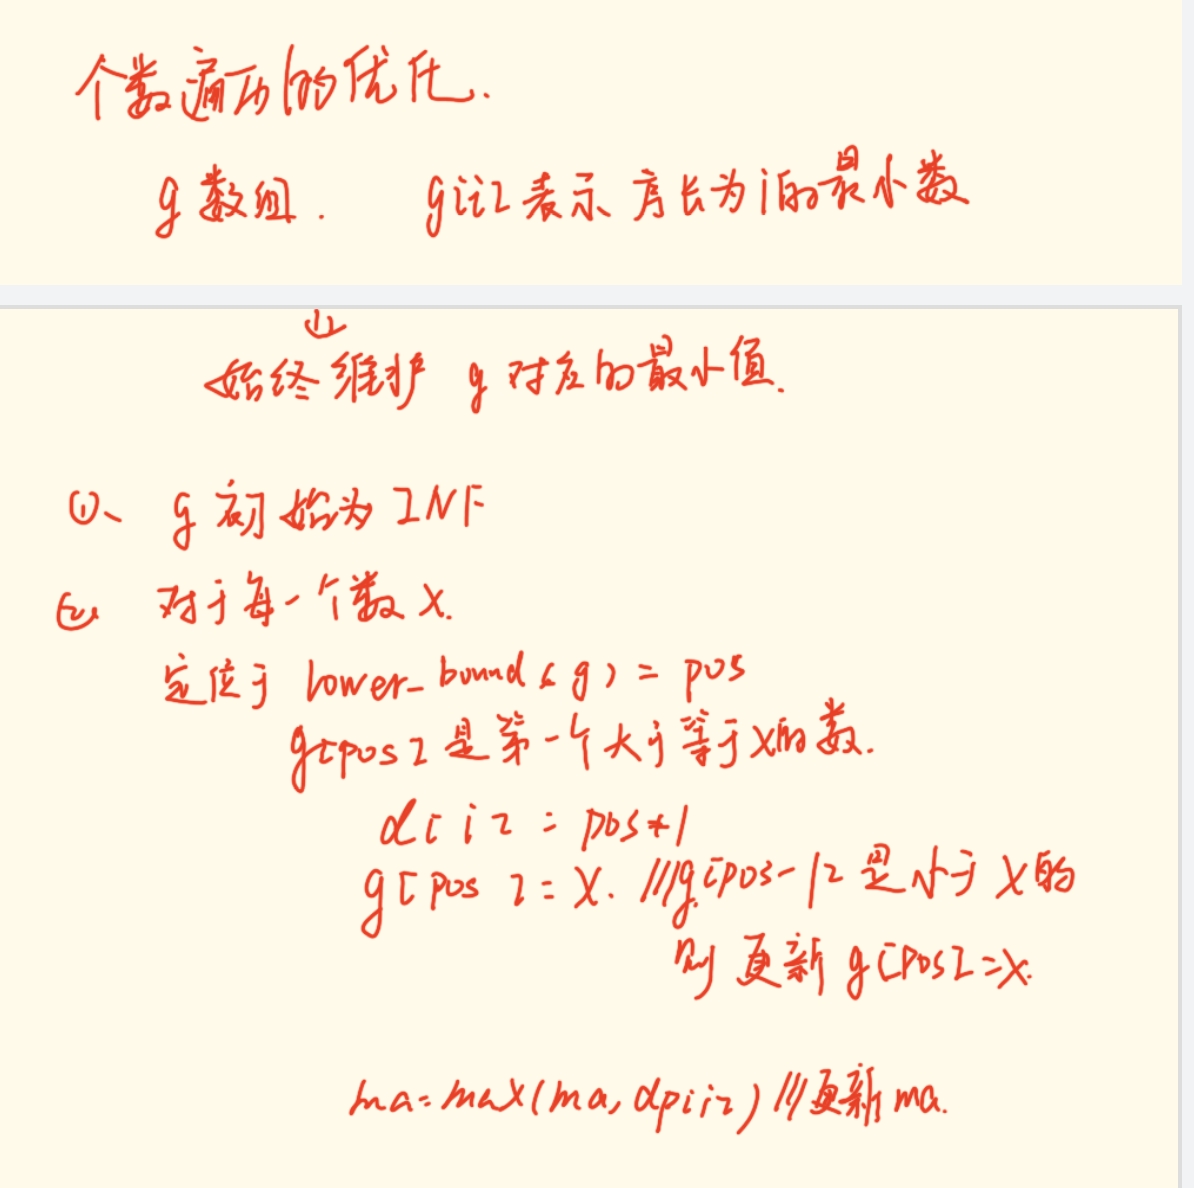 个数遍历的优化.
g数组. g[i]表示 序长为i的最小数
始终维护 g对应的最小值.
①、 g初始为INF
② 对于每一个数x.
定位于 lower_bound(g) = pos
g[pos]是第一个大于等于x的数.
d[i] = pos+1
g[pos] = x. //g[pos-1]是小于x的
则更新g[pos]=x.
ma=max(ma,dp[i]) //更新ma.